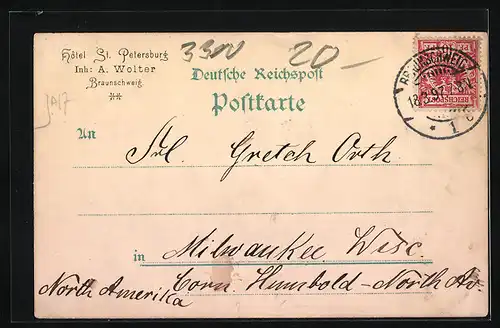 Hôtel St. Petersburg
Inh: A. Wolter
Braunschweig.
3300
20-
Deutsche Reichspost
Postkarte
BRAUNSCHWEIG
1
REICHSPOST
An
Frl. Gretch Orth
in Milwaukee Wisc.
North Amerika
Corn. Humbold - North Av.